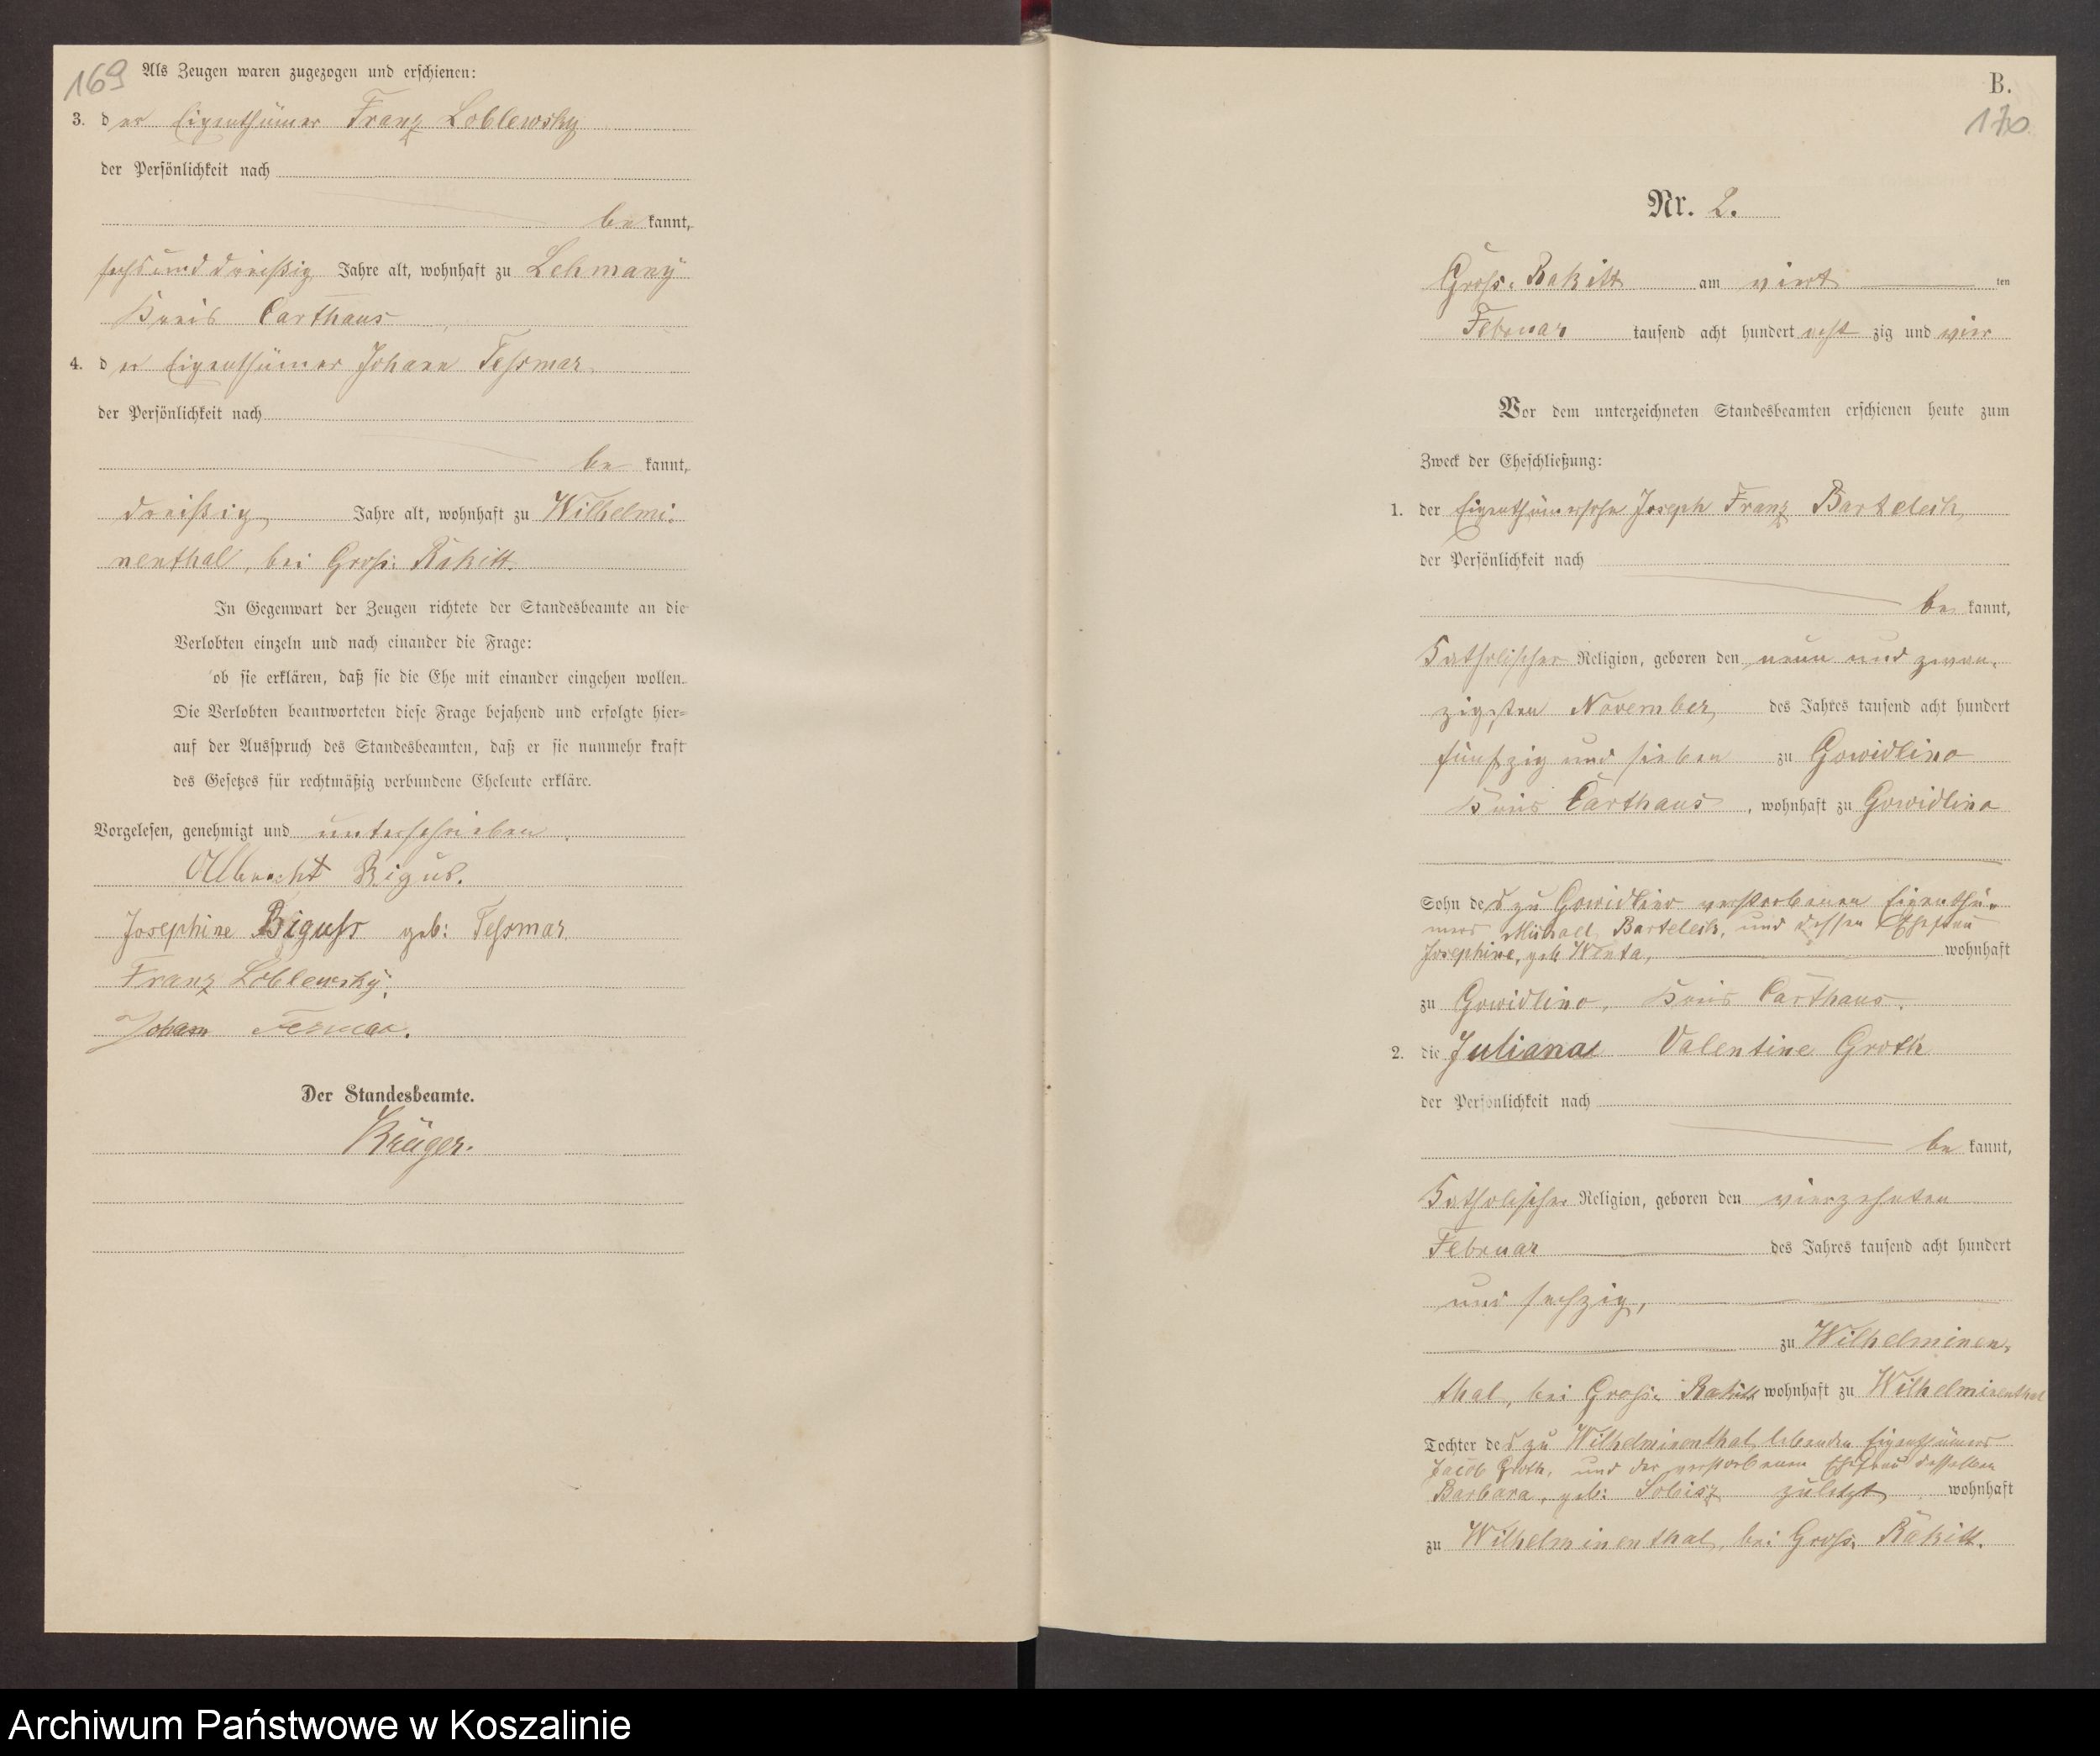 169
Als Zeugen waren zugezogen und erschienen:
3. der Eigenthümer Franz Loblewsky
der Persönlichkeit nach
bekannt,
sechs und dreißig Jahre alt, wohnhaft zu Lehmany
Kreis Carthaus
4. der Eigenthümer Johann Tessmar
der Persönlichkeit nach
bekannt,
dreißig Jahre alt, wohnhaft zu Wilhelmi-
nenthal, bei Gross-Rakitt.
In Gegenwart der Zeugen richtete der Standesbeamte an die
Verlobten einzeln und nach einander die Frage:
ob sie erklären, daß sie die Ehe mit einander eingehen wollen.
Die Verlobten beantworteten diese Frage bejahend und erfolgte hier-
auf der Ausspruch des Standesbeamten, daß er sie nunmehr kraft
des Gesetzes für rechtmäßig verbundene Eheleute erkläre.
Vorgelesen, genehmigt und unterschrieben.
Albrecht Bigus.
Josephine Biguss geb: Tessmar
Franz Loblewsky.
Johann
Der Standesbeamte.
Krüger.
B.
170
Nr. 2.
Gross-Rakitt am viert ten
Februar tausend acht hundert acht zig und vier
Vor dem unterzeichneten Standesbeamten erschienen heute zum
Zweck der Eheschließung:
1. der Eigenthümersohn Joseph Franz Barteleik
der Persönlichkeit nach
bekannt,
Katholischer Religion, geboren den neun und zwan-
zigsten November des Jahres tausend acht hundert
fünfzig und sieben zu Gowidlino
Kreis Carthaus, wohnhaft zu Gowidlino
Sohn des zu Gowidlino verstorbenen Eigenthü-
mers Michael Barteleik, und dessen Ehefrau
Josephine, geb. Wenta, wohnhaft
zu Gowidlino, Kreis Carthaus.
2. die Juliana Valentine Groth
der Persönlichkeit nach
bekannt,
Katholischer Religion, geboren den vierzehnten
Februar des Jahres tausend acht hundert
und sechzig,
zu Wilhelminen-
thal, bei Gross-Rakitt wohnhaft zu Wilhelminenthal
Tochter des zu Wilhelminenthal lebenden Eigenthümers
Jacob Groth, und der verstorbenen Ehefrau desselben
Barbara, geb: zuletzt wohnhaft
zu Wilhelminenthal, bei Gross-Rakitt.
Archiwum Państwowe w Koszalinie